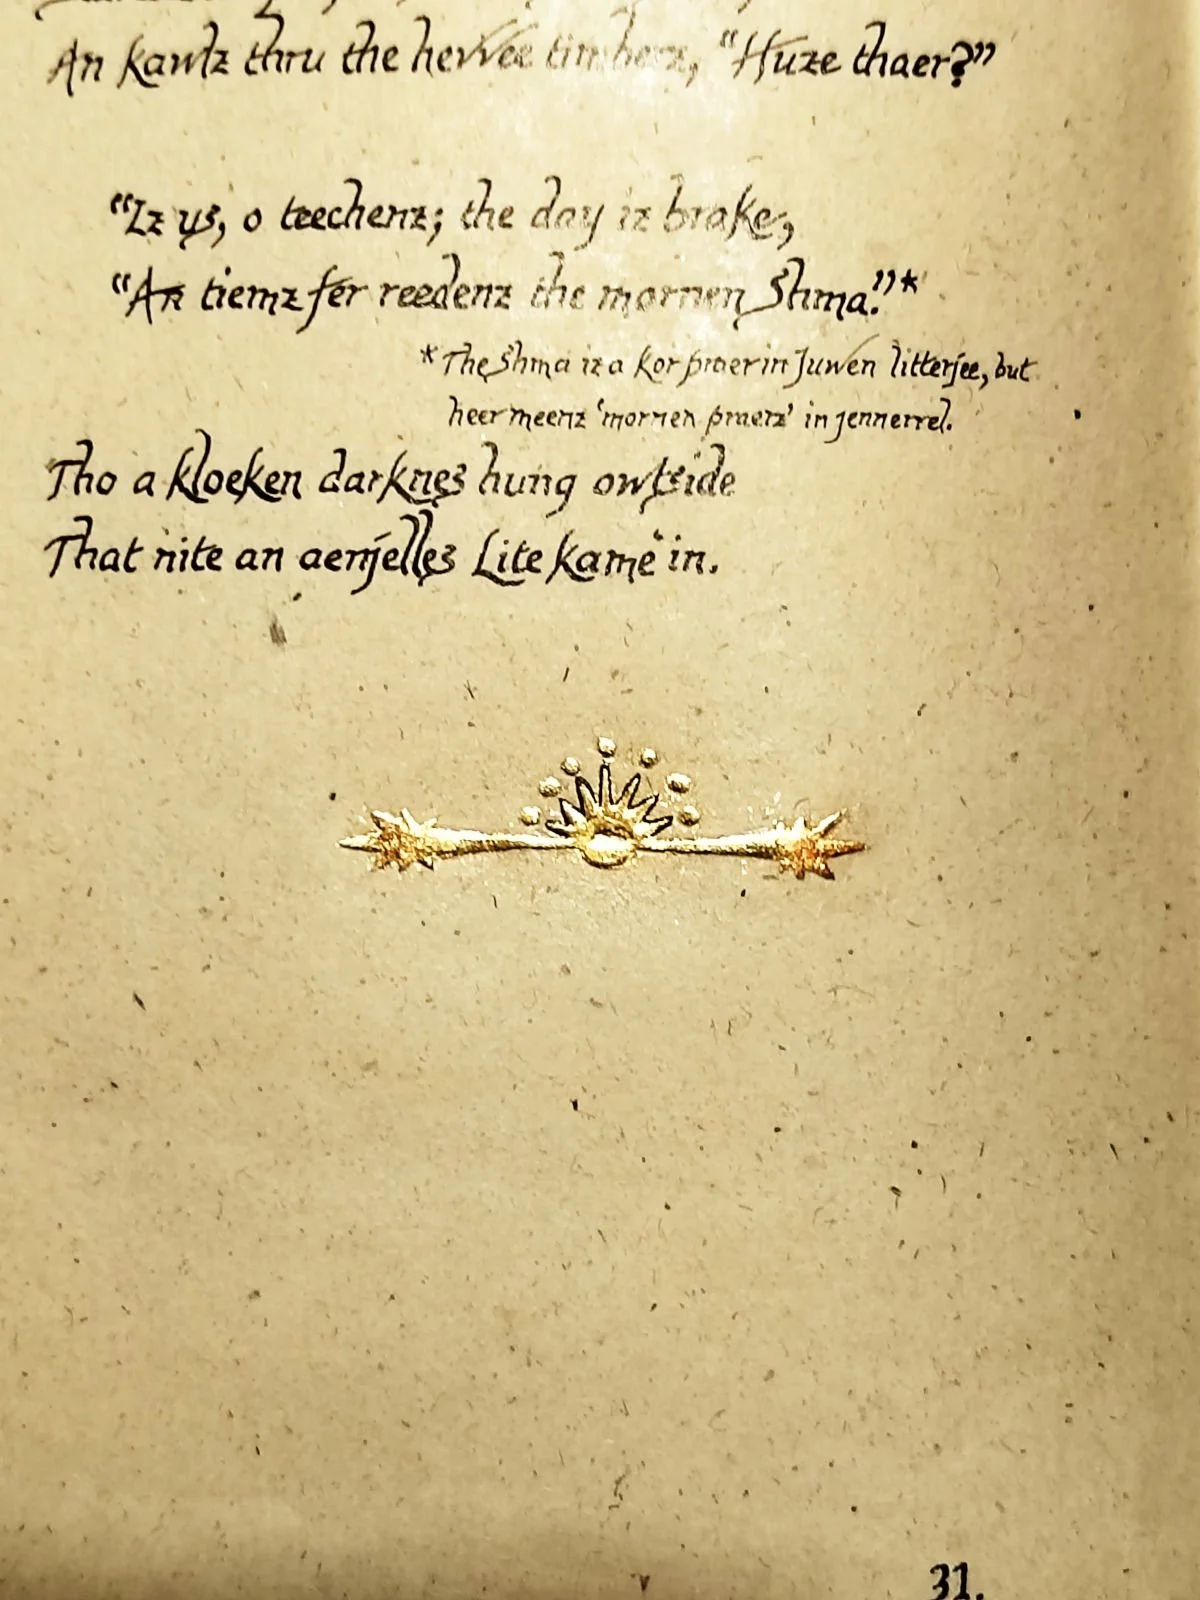 An kawlz thru the hevvee timberz, "Huze thaer?"
"Iz us, o teechenz; the day iz brake,
"An tiemz fer reedenz the mornen Shma."*
*The Shma iz a kor praer in Juwen litterjee, but
heer meenz 'mornen praerz' in jennerrel.
Tho a kloeken darknes hung owtside
That nite an aenjelles Lite kame in.
31.